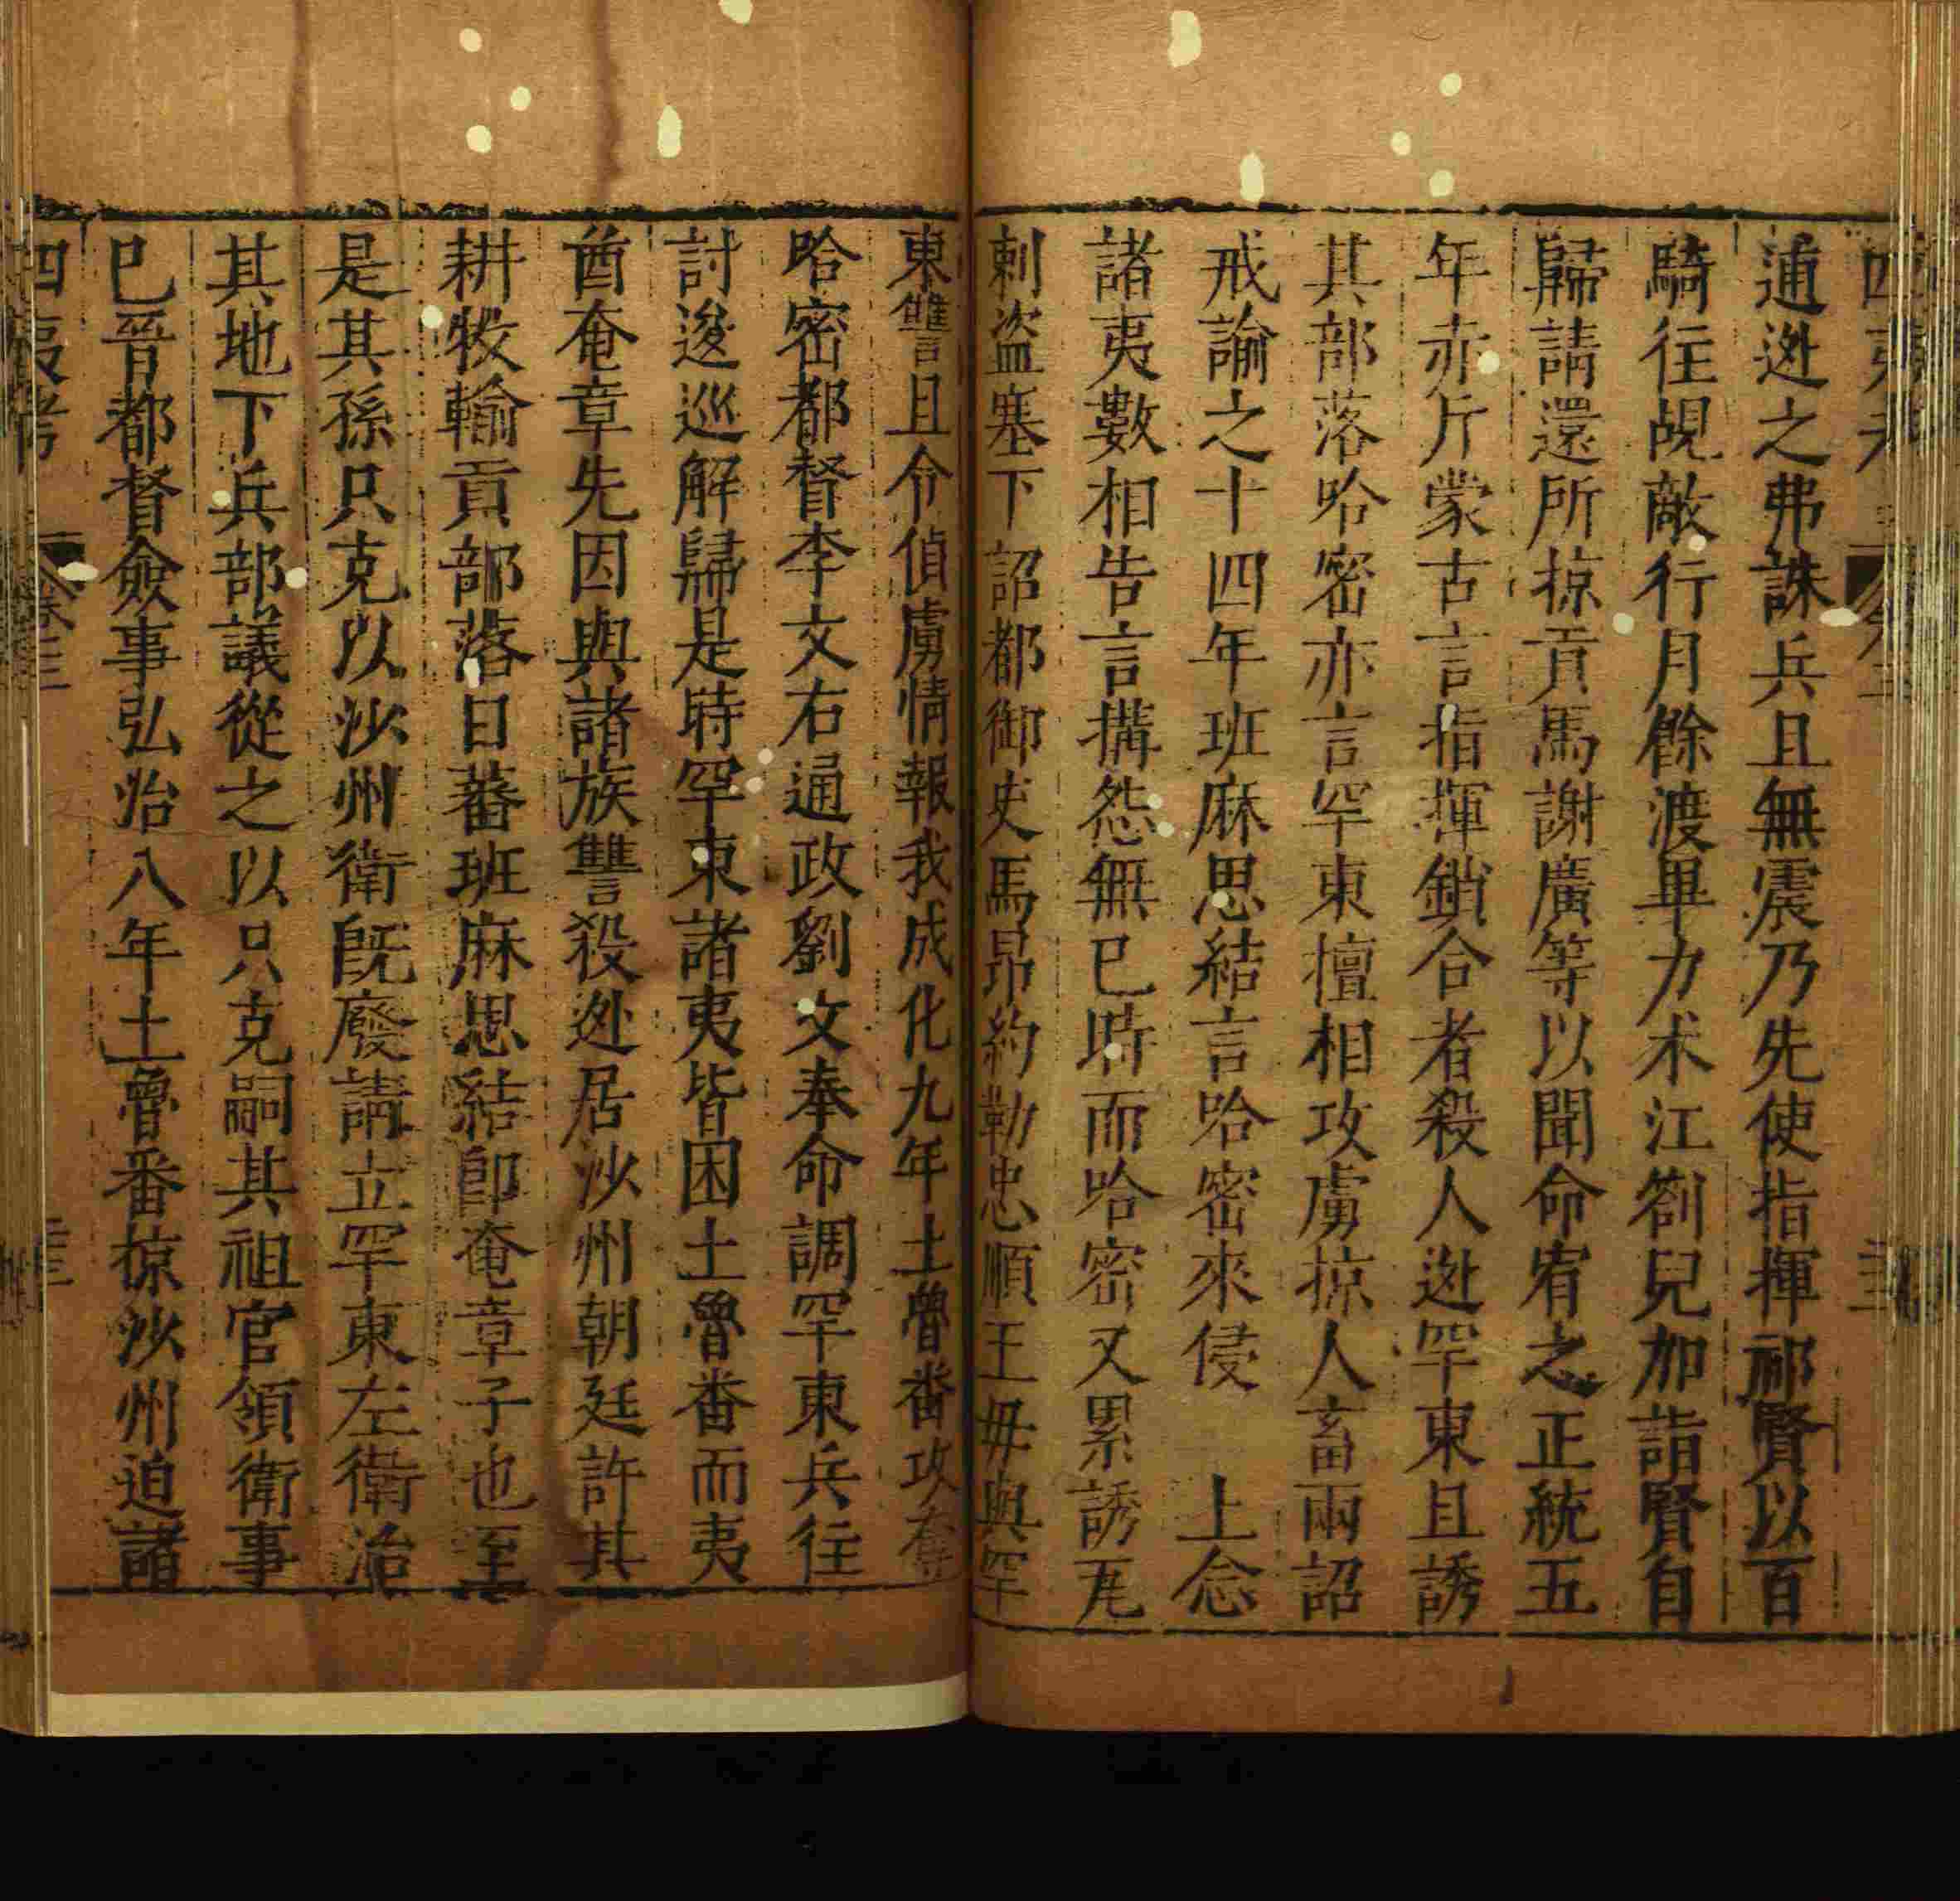 逋迯之弗誅兵且無震乃先使指揮祁賢以百
騎往覘敵行月餘渡畢力术江劄兒加詣賢自
歸請還所掠貢馬謝廣等以聞命宥之正統五
年赤斤蒙古言指揮鎖合者殺人迯罕東且誘
其部落哈密亦言罕東擅相攻虜掠人畜兩詔
戒諭之十四年班麻思結言哈密來侵 上念
諸夷數相告言搆怨無已時而哈密又累誘瓦
剌盜塞下詔都御史馬昂約勒忠順王毋與罕
東讐且令偵虜情報我成化九年土魯番攻奪
哈密都督李文右通政劉文奉命調罕東兵往
討逡巡解歸是時罕東諸夷皆困土魯番而夷
酋奄章先因與諸族讐殺迯居沙州朝廷許其
耕牧輸貢部落日蕃班麻思結卽奄章子也至
是其孫只克以沙州衛旣廢請立罕東左衛治
其地下兵部議從之以只克嗣其祖官領衛事
已晉都督僉事弘治八年土魯番掠沙州迫諸
四夷考 卷三